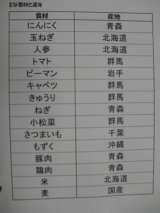 食材 産地
にんにく 青森
玉ねぎ 北海道
人参 北海道
トマト 群馬
ピーマン 岩手
キャベツ 群馬
きゅうり 群馬
ねぎ 青森
小松菜 群馬
さつまいも 千葉
もずく 沖縄
豚肉 青森
鶏肉 青森
米 北海道
麦 国産